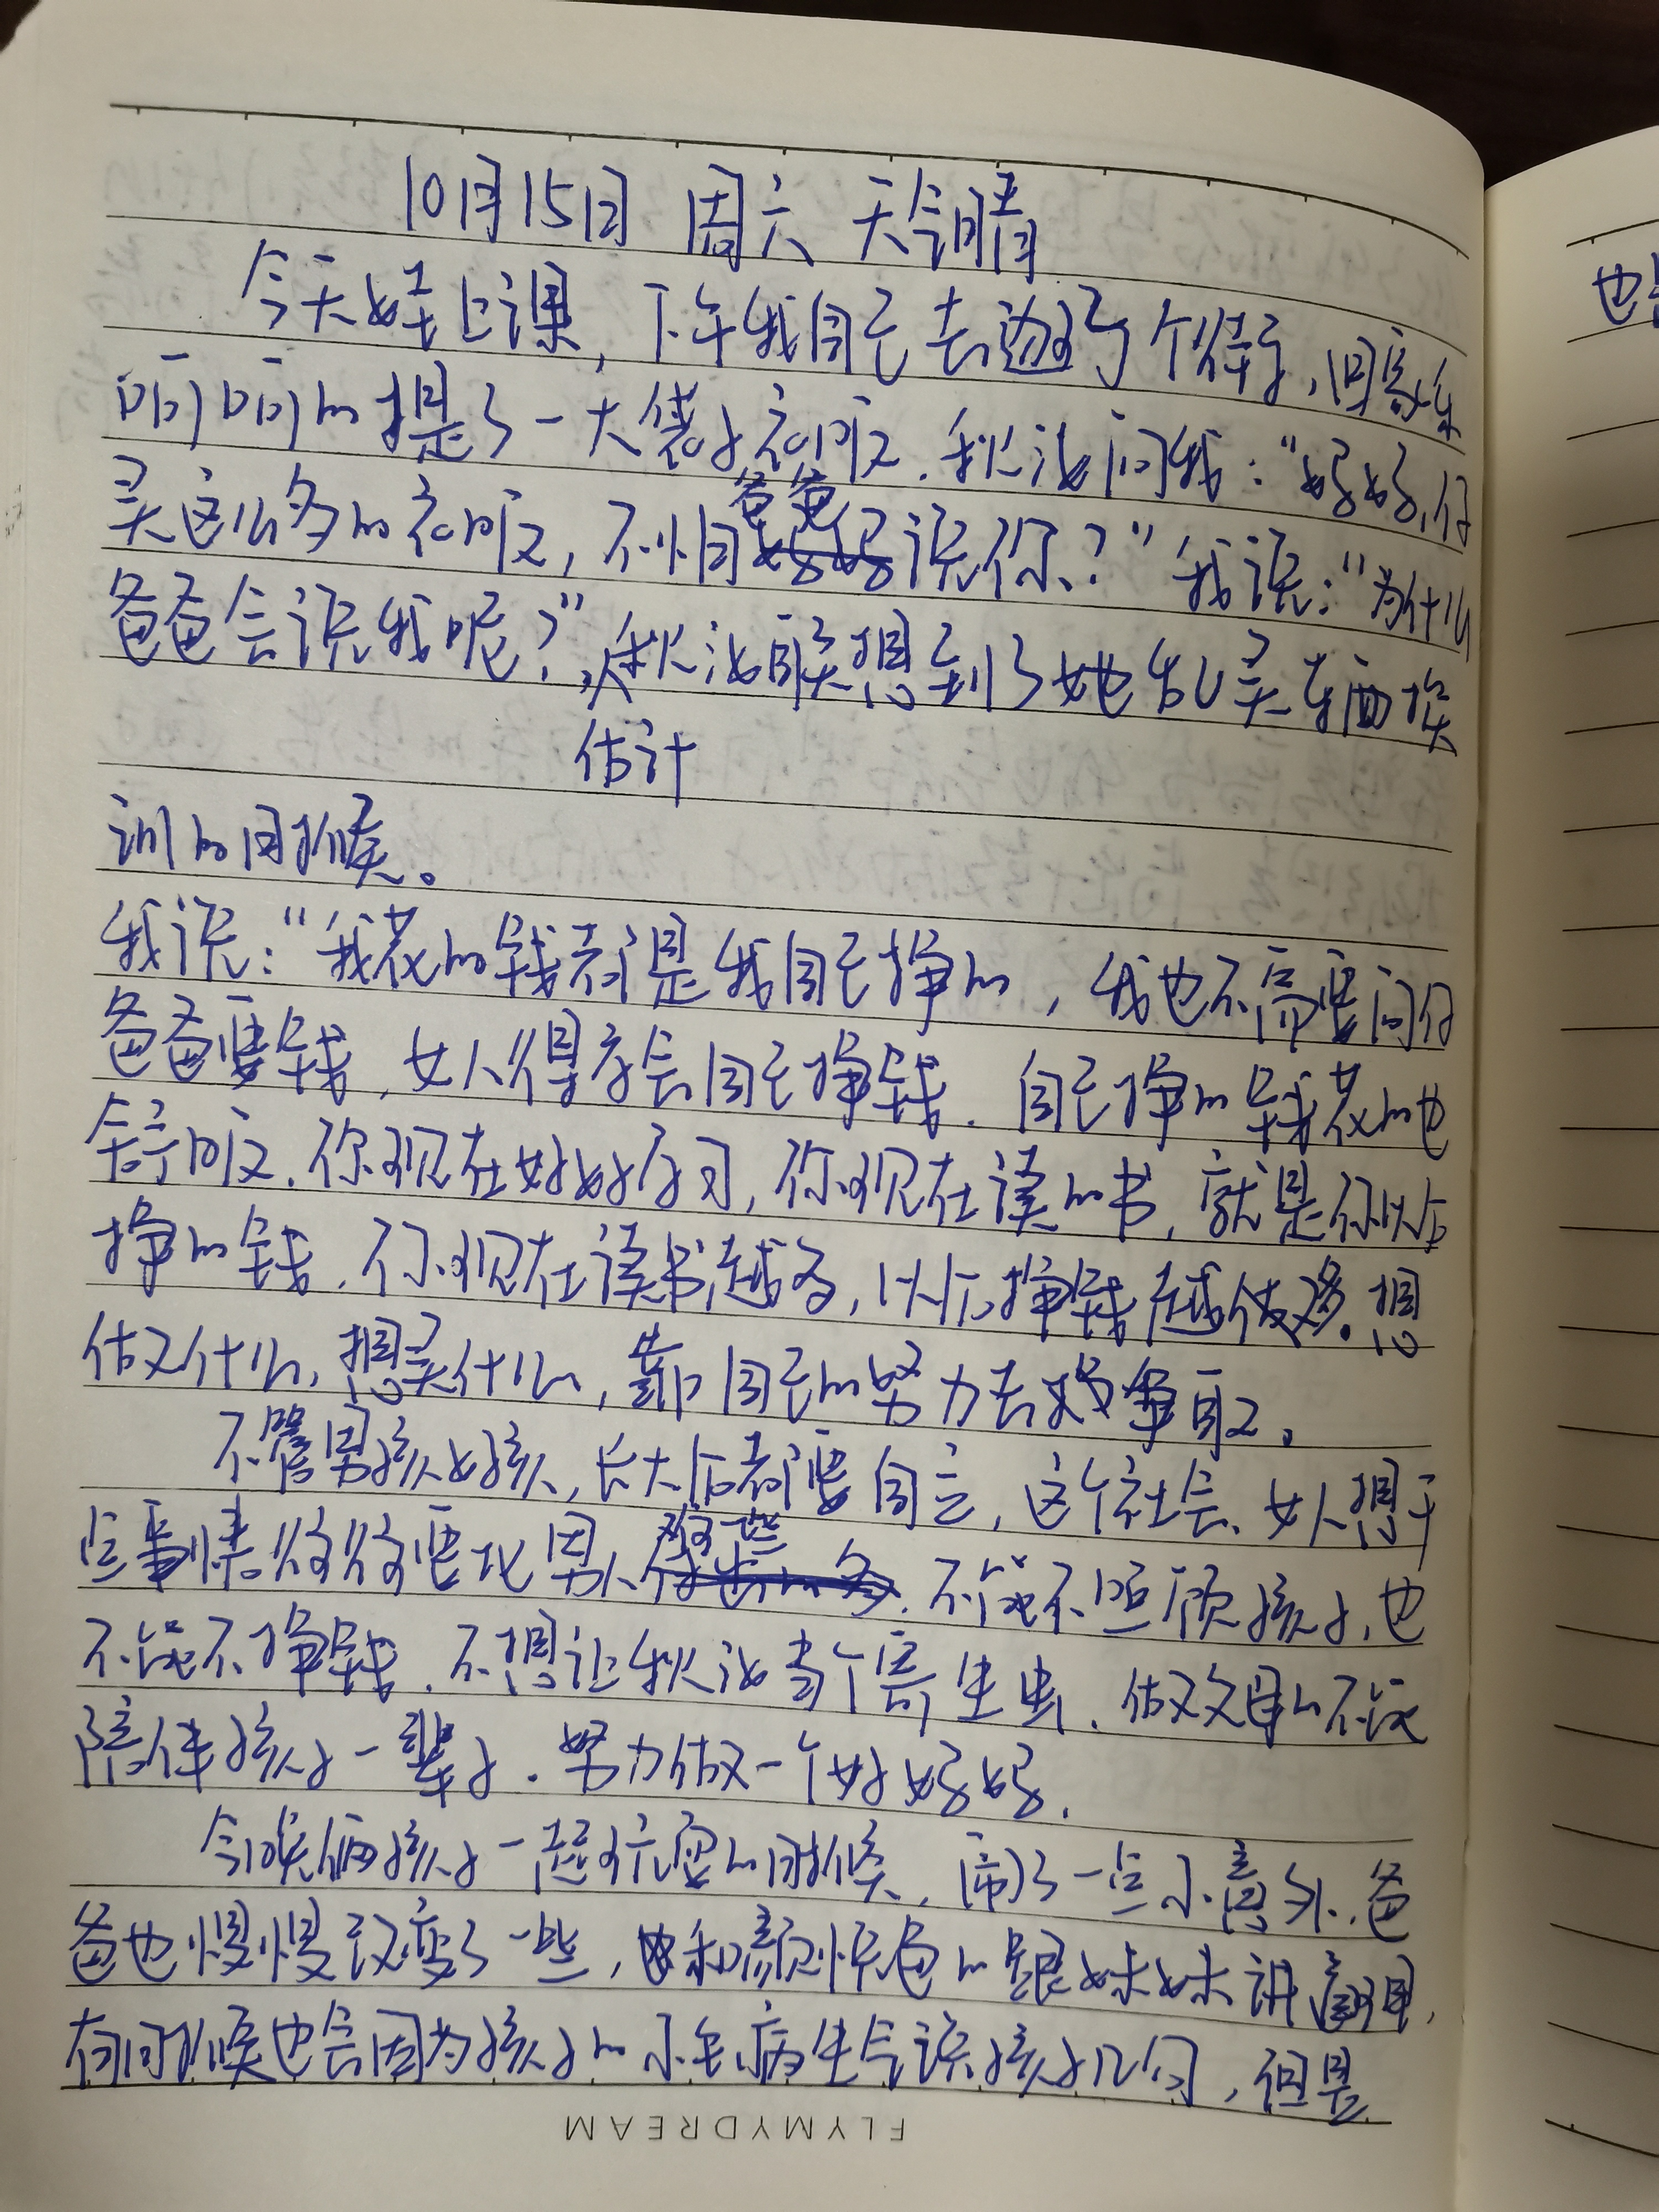 10月15日 周六 天气晴
今天娃上课，下午我自己去逛了个街，回家
啊啊的提了一大袋子衣服．秋泓问我：“妈妈，你
买这么多的衣服，不怕爸爸说你？”我说：“为什么
爸爸会说我呢？”，秋泓联想到了她乱买东西挨
估计
训的时候。
我说：“我花的钱都是我自己挣的，我也不需要问你
爸爸要钱，女人得学会自己挣钱．自己挣的钱花的也
舒服．你现在好好学习，你现在读的书，就是你以后
挣的钱．你现在读书越多，以后挣钱越多．想
做什么，想买什么，靠自己的努力去争取。
不管男孩女孩，长大后都要自立，这个社会、女人想干
点事情往往要比男人难些．不能不照顾孩子，也
不能不挣钱．不想让秋泓当个寄生虫．做父母的不能
陪伴孩子一辈子．努力做一个好妈妈．
今晚俩孩子一起玩耍的时候，闹了一点小意外．爸
爸也慢慢改变了一些，也和颜悦色的跟妹妹讲道理，
有时候也会因为孩子的小毛病生气谅孩子几句，但是
FLYMYDREAM
也